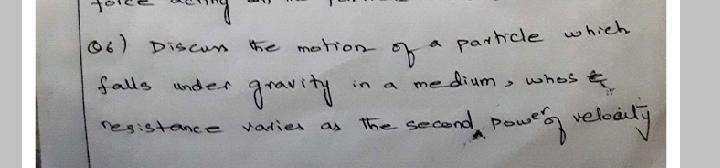 force acting
Q6) Discuss the motion of a particle which
falls under gravity in a medium, whos
resistance varies as the second power of velocity